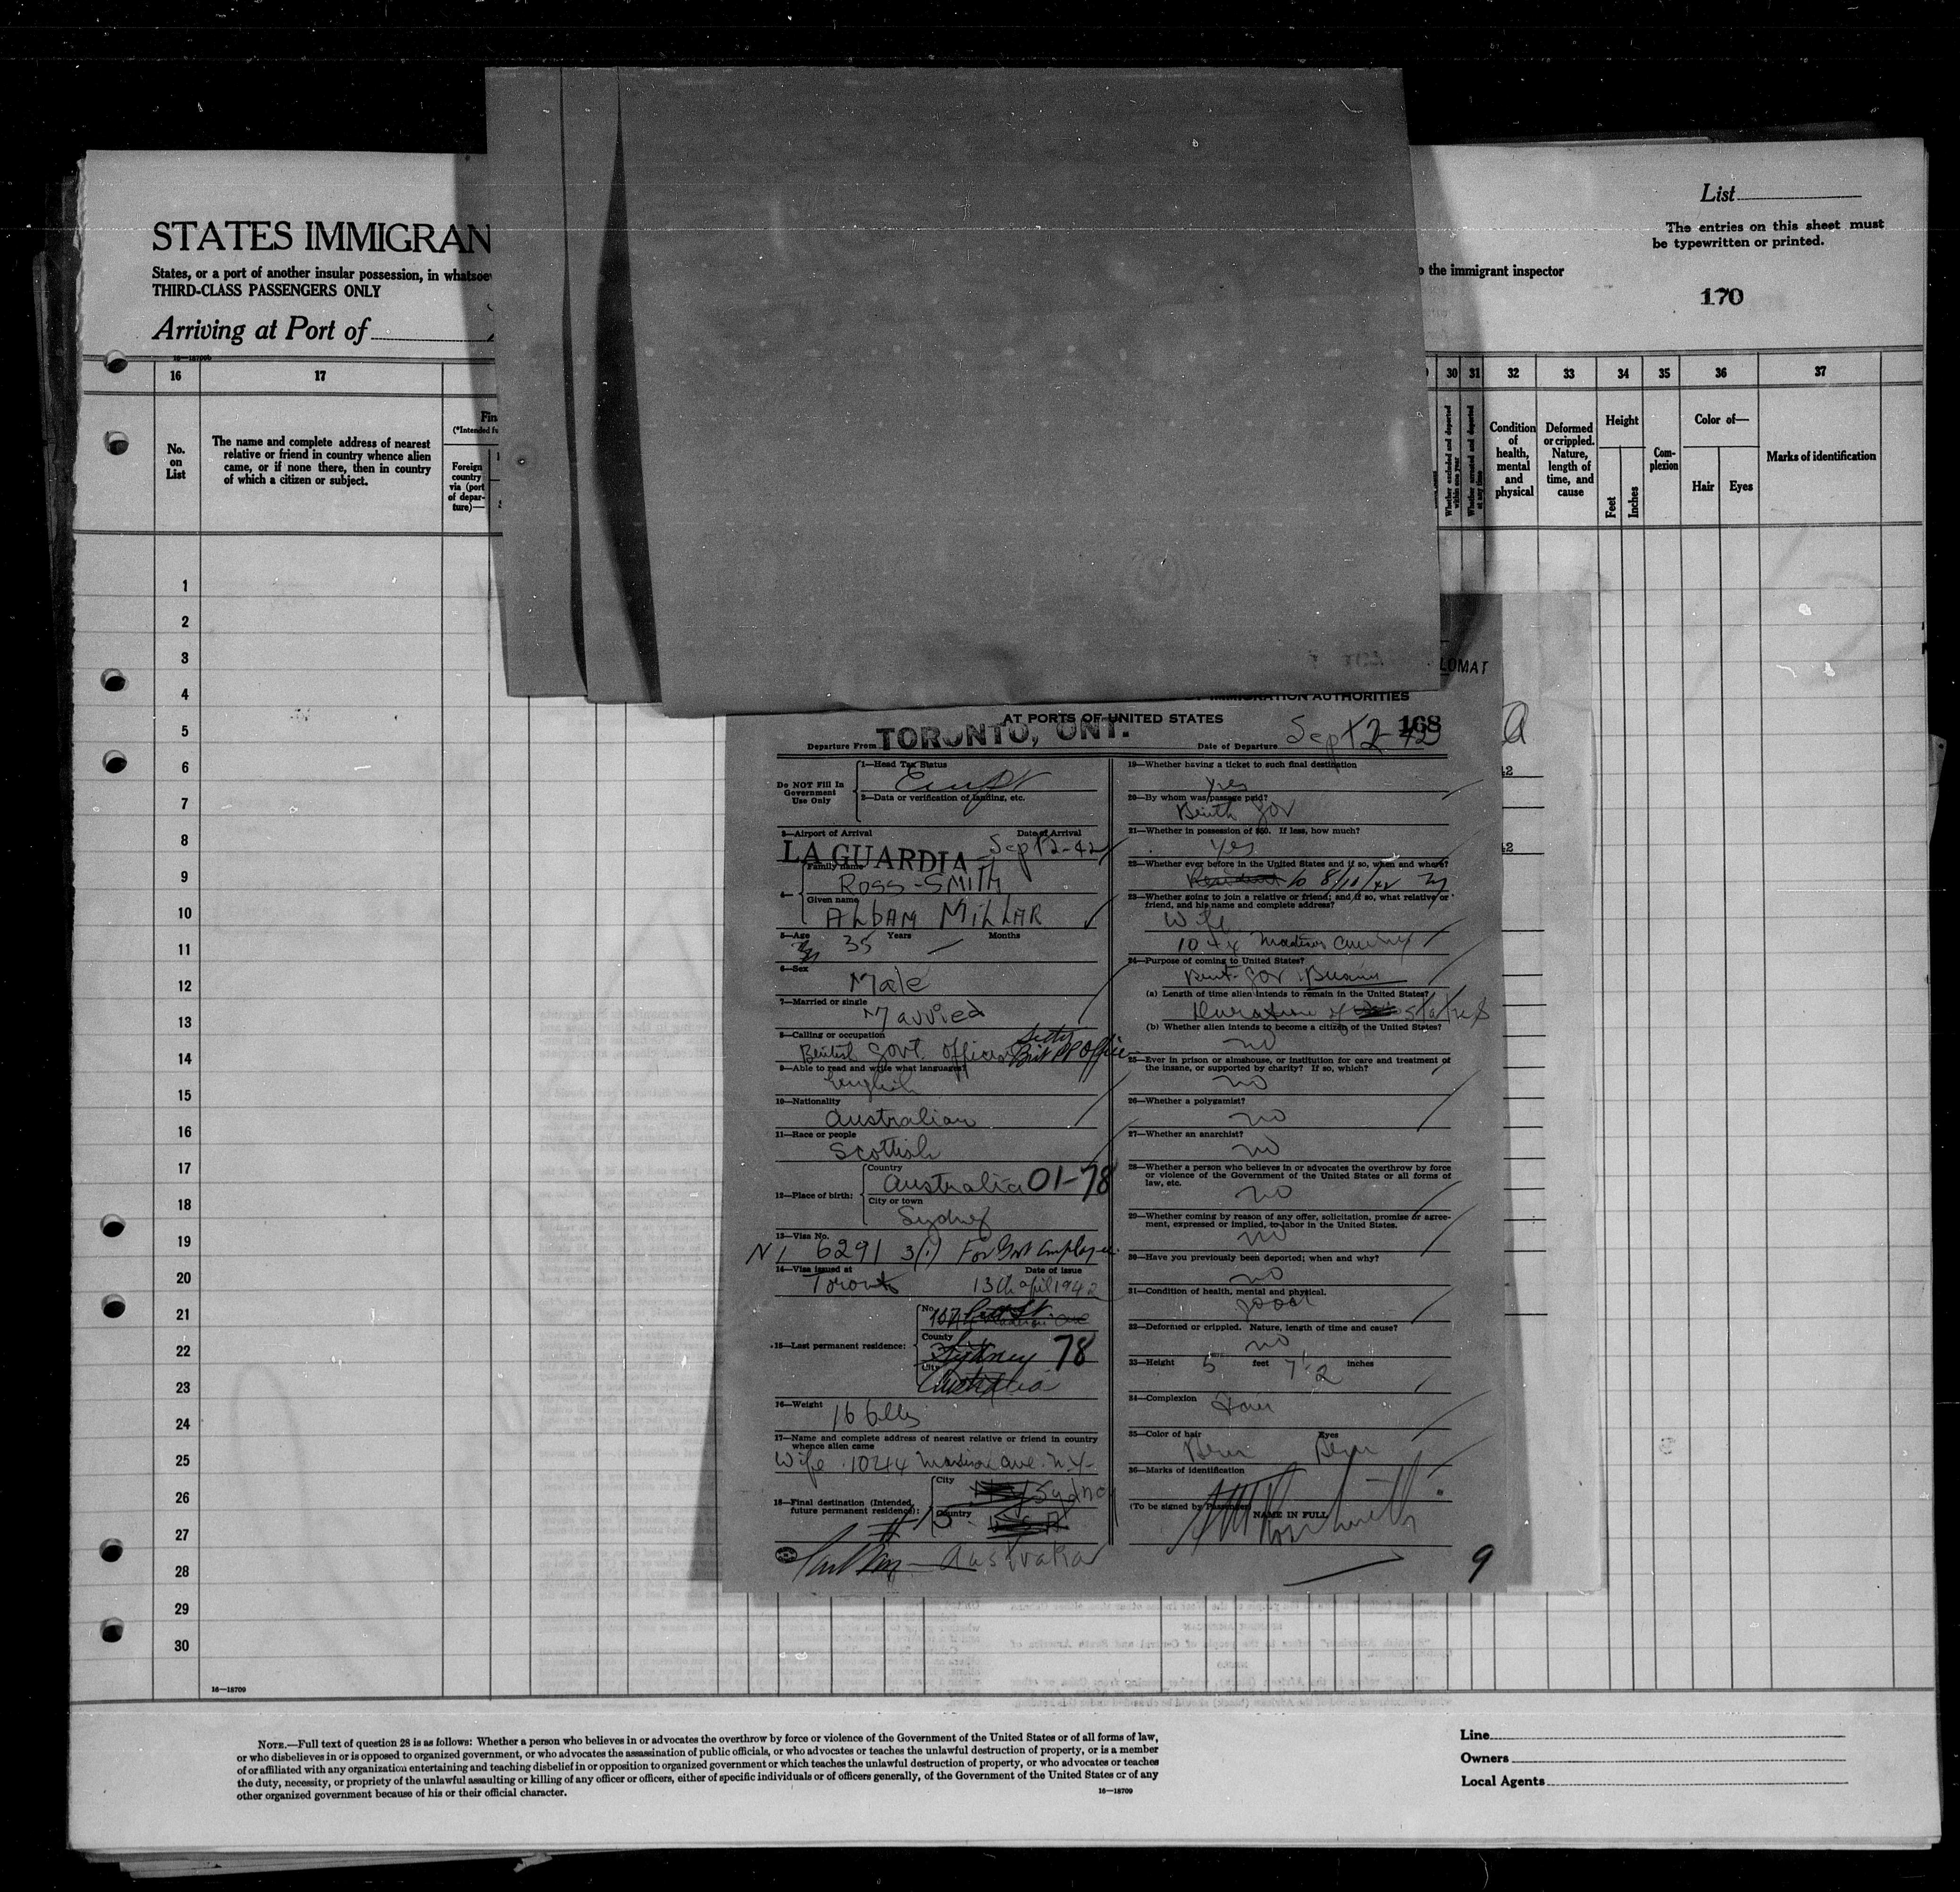 List
The entries on this sheet must
be typewritten or printed.
STATES IMMIGRAN
States, or a port of another insular possession, in whatsoev
o the immigrant inspector
THIRD-CLASS PASSENGERS ONLY
170
Arriving at Port of
16 17 30 31 32 33 34 35 36 37
No. on List
The name and complete address of nearest
relative or friend in country whence alien
came, or if none there, then in country
of which a citizen or subject.
Fin
(*Intended fu
Foreign
country
via (port
of depar-
ture)—
Whether excluded and deported within one year
Whether arrested and deported at any time
Condition
of
health,
mental
and
physical
Deformed
or crippled.
Nature,
length of
time, and
cause
Height
Feet Inches
Com-
plexion
Color of—
Hair Eyes
Marks of identification
1
2
3
4
5
6
7
8
9
10
11
12
13
14
15
16
17
18
19
20
21
22
23
24
25
26
27
28
29
30
16—18709
LOMAT
IMMIGRATION AUTHORITIES
AT PORTS OF UNITED STATES
168
Departure From TORONTO, ONT.
Date of Departure Sept 2-42
Do NOT Fill In
Government
Use Only
1—Head Tax Status
2—Data or verification of landing, etc.
3—Airport of Arrival Date of Arrival
LA GUARDIA Sept 2-42
4— Family name
ROSS-SMITH
Given name
ALDAM MILLAR
5—Age 35 Years — Months
6—Sex
Male
7—Married or single
Married
8—Calling or occupation
British Govt. Officer
9—Able to read and write what languages?
English
10—Nationality
Australian
11—Race or people
Scottish
12—Place of birth:
Country
Australia 01-78
City or town
Sydney
13—Visa No.
6291 3(1) For Govt Employee
14—Visa issued at Date of issue
Toronto 13th April 1942
15—Last permanent residence:
No.
County
Sydney 78
City
Australia
16—Weight 166 lbs
17—Name and complete address of nearest relative or friend in country
whence alien came
Wife 1044 Madison Ave. N.Y.
18—Final destination (Intended,
future permanent residence):
City
Sydney
Country
Australia
19—Whether having a ticket to such final destination
Yes
20—By whom was passage paid?
British Gov
21—Whether in possession of $50. If less, how much?
Yes
22—Whether ever before in the United States and if so, when and where?
to 8/10/42 NY
23—Whether going to join a relative or friend; and if so, what relative or
friend, and his name and complete address?
Wife
1044 Madison Ave NY
24—Purpose of coming to United States?
Brit. Gov Business
(a) Length of time alien intends to remain in the United States?
Duration of status
(b) Whether alien intends to become a citizen of the United States?
no
25—Ever in prison or almshouse, or institution for care and treatment of
the insane, or supported by charity? If so, which?
no
26—Whether a polygamist?
no
27—Whether an anarchist?
no
28—Whether a person who believes in or advocates the overthrow by force
or violence of the Government of the United States or all forms of
law, etc.
no
29—Whether coming by reason of any offer, solicitation, promise or agree-
ment, expressed or implied, to labor in the United States.
no
30—Have you previously been deported; when and why?
no
31—Condition of health, mental and physical.
good
32—Deformed or crippled. Nature, length of time and cause?
no
33—Height 5 feet 7½ inches
34—Complexion
35—Color of hair Eyes
36—Marks of identification
(To be signed by Passenger)
NAME IN FULL
9
NOTE.—Full text of question 28 is as follows: Whether a person who believes in or advocates the overthrow by force or violence of the Government of the United States or of all forms of law,
or who disbelieves in or is opposed to organized government, or who advocates the assassination of public officials, or who advocates or teaches the unlawful destruction of property, or is a member
of or affiliated with any organization entertaining and teaching disbelief in or opposition to organized government or which teaches the unlawful destruction of property, or who advocates or teaches
the duty, necessity, or propriety of the unlawful assaulting or killing of any officer or officers, either of specific individuals or of officers generally, of the Government of the United States or of any
other organized government because of his or their official character.
16—18709
Line
Owners
Local Agents